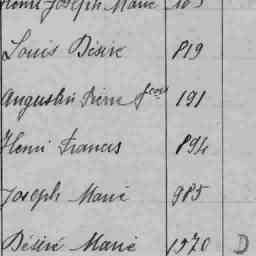 Henri Joseph Marie 103
Louis Désiré 819
Augustin Pierre 191
Henri Francis 894
Joseph Marie 985
Désiré Marie 1570 D